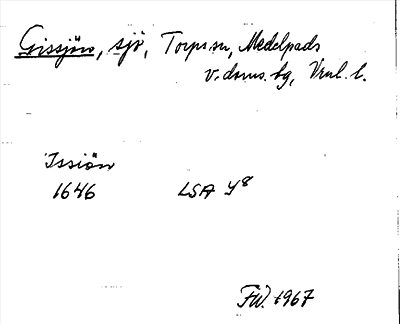 Gissjön, sjö, Torps sn, Medelpads
v. doms. hg, Vnl. l.
Issiön
1646 LSA Y8
FW. 1967